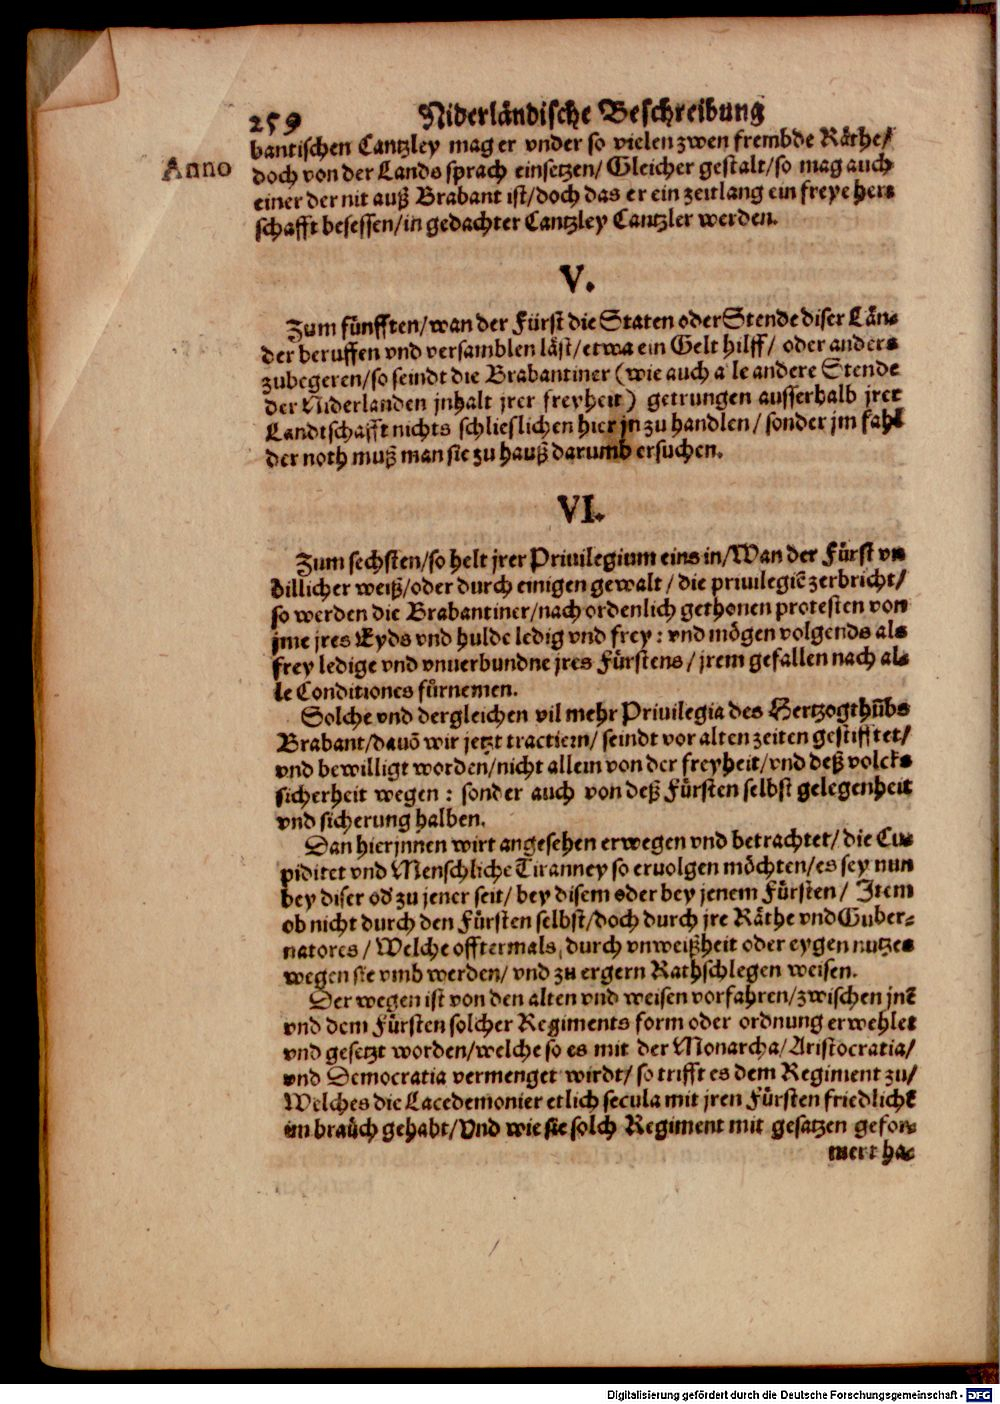 259 Niderländische Beschreibung
Anno
bantischen Cantzley mag er vnder so vielen zwen frembde Räthe/
doch von der Lands sprach einsetzen/ Gleicher gestalt/ so mag auch
einer der nit auß Brabant ist/ doch das er ein zeitlang ein freye herr
schafft besessen/ in gedachter Cantzley Cantzler werden.
V.
Zum fünfften/ wan der Fürst die Staten oder Stende diser Län-
der beruffen vnd versamblen läst/ etwa ein Gelt hilff/ oder anders
zubegeren/ so seindt die Brabantiner (wie auch alle andere Stende
der Niderlanden jnhalt jrer freyheit) getrungen ausserhalb jrer
Landtschafft nichts schlieslichen hier jn zu handlen/ sonder jm fahl
der noth muß man sie zu hauß darumb ersuchen.
VI.
Zum sechsten/ so helt jrer Priuilegium eins in/ Wan der Fürst vn
billicher weiß/ oder durch einigen gewalt/ die priuilegiē zerbricht/
so werden die Brabantiner/ nach ordenlich gethonen protesten von
jme jres Eyds vnd hulde ledig vnd frey: vnd mögen volgends als
frey ledige vnd vnuerbundne jres Fürstens/ jrem gefallen nach al-
le Conditiones fürnemen.
Solche vnd dergleichen vil mehr Priuilegia des Hertzogthūbs
Brabant/ dauō wir jetzt tractiern/ seindt vor alten zeiten gestifftet/
vnd bewilligt worden/ nicht allein von der freyheit/ vnd deß volcks
sicherheit wegen: sonder auch von deß Fürsten selbst gelegenheit
vnd sicherung halben.
Dan hierjnnen wirt angesehen erwegen vnd betrachtet/ die Cu-
piditet vnd Menschliche Tiranney so eruolgen möchten/ es sey nun
bey diser od zu jener seit/ bey disem oder bey jenem Fürsten/ Item
ob nicht durch den Fürsten selbst/ doch durch jre Räthe vnd Guber-
natores/ Welche offtermals, durch vnweißheit oder eygen nutzes
wegen sie vmb werden/ vnd zu ergern Rathschlegen weisen.
Der wegen ist von den alten vnd weisen vorfahren/ zwischen jnē
vnd dem Fürsten solcher Regiments form oder ordnung erwehlet
vnd gesetzt worden/ welche so es mit der Monarcha/ Aristocratia/
vnd Democratia vermenget wirdt/ so trifft es dem Regiment zu/
Welches die Lacedemonier etlich secula mit jren Fürsten friedlich
im braüch gehabt/ Vnd wie sie solch Regiment mit gesatzen gefor-
mert ha-
Digitalisierung gefördert durch die Deutsche Forschungsgemeinschaft - DFG